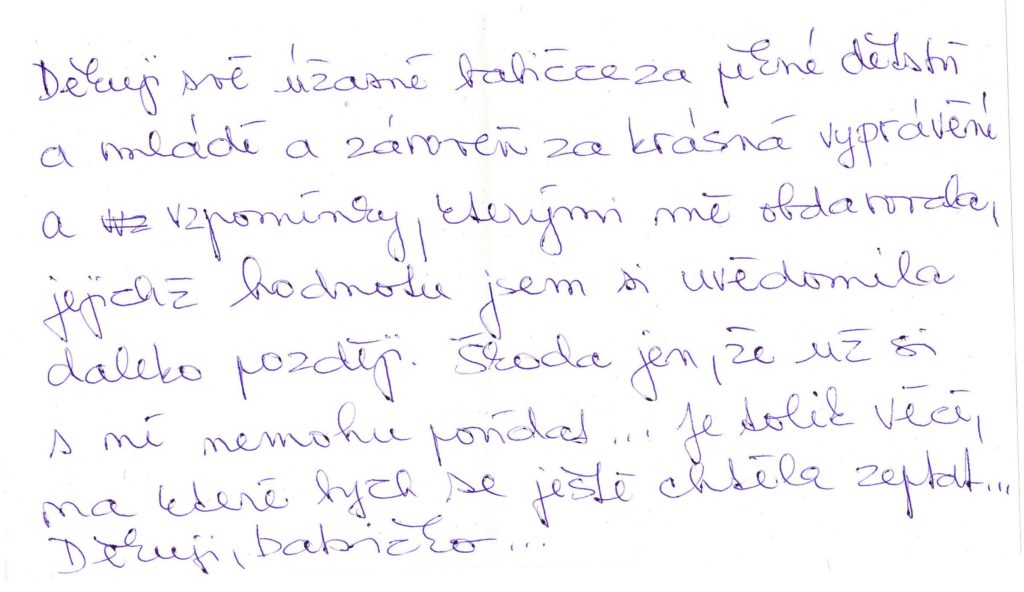 Děkuji své úžasné babičce za pěkné dětství
a mládí a zároveň za krásná vyprávění
a vzpomínky, kterými mě obdarovala,
jejichž hodnotu jsem si uvědomila
daleko později. Škoda jen, že už si
s ní nemohu povídat... Je tolik věcí,
na které bych se ještě chtěla zeptat...
Děkuji, babičko...